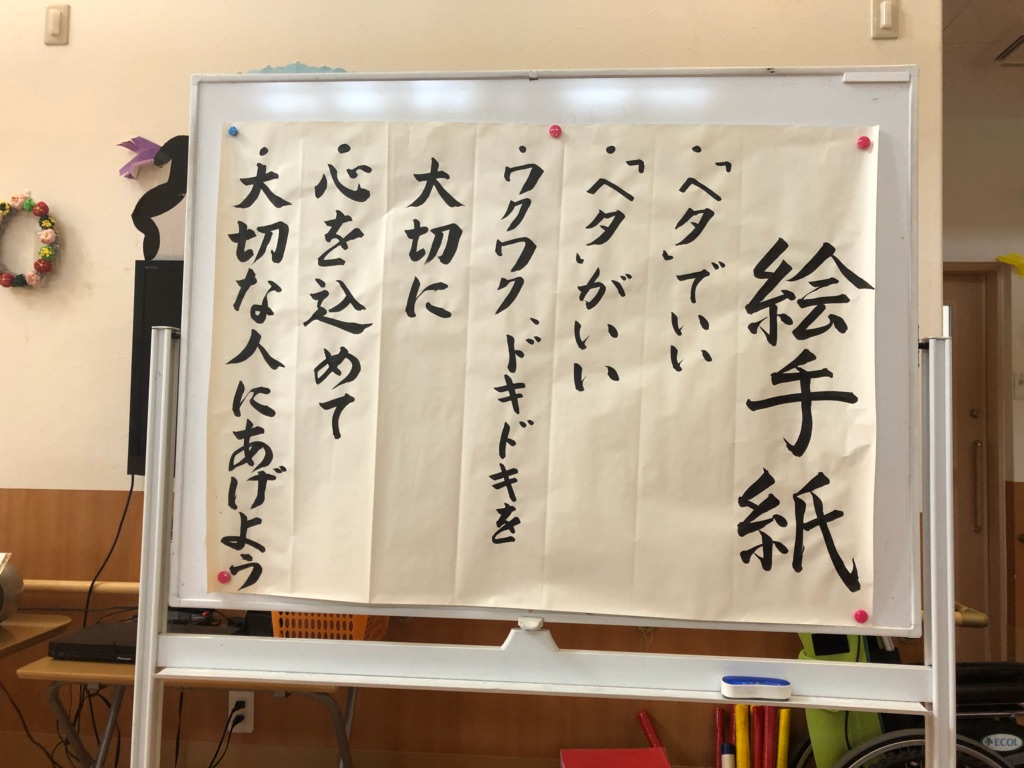 絵手紙
・「ヘタ」でいい
・「ヘタ」がいい
・ワクワク、ドキドキを
大切に
・心を込めて
・大切な人にあげよう
ECOL